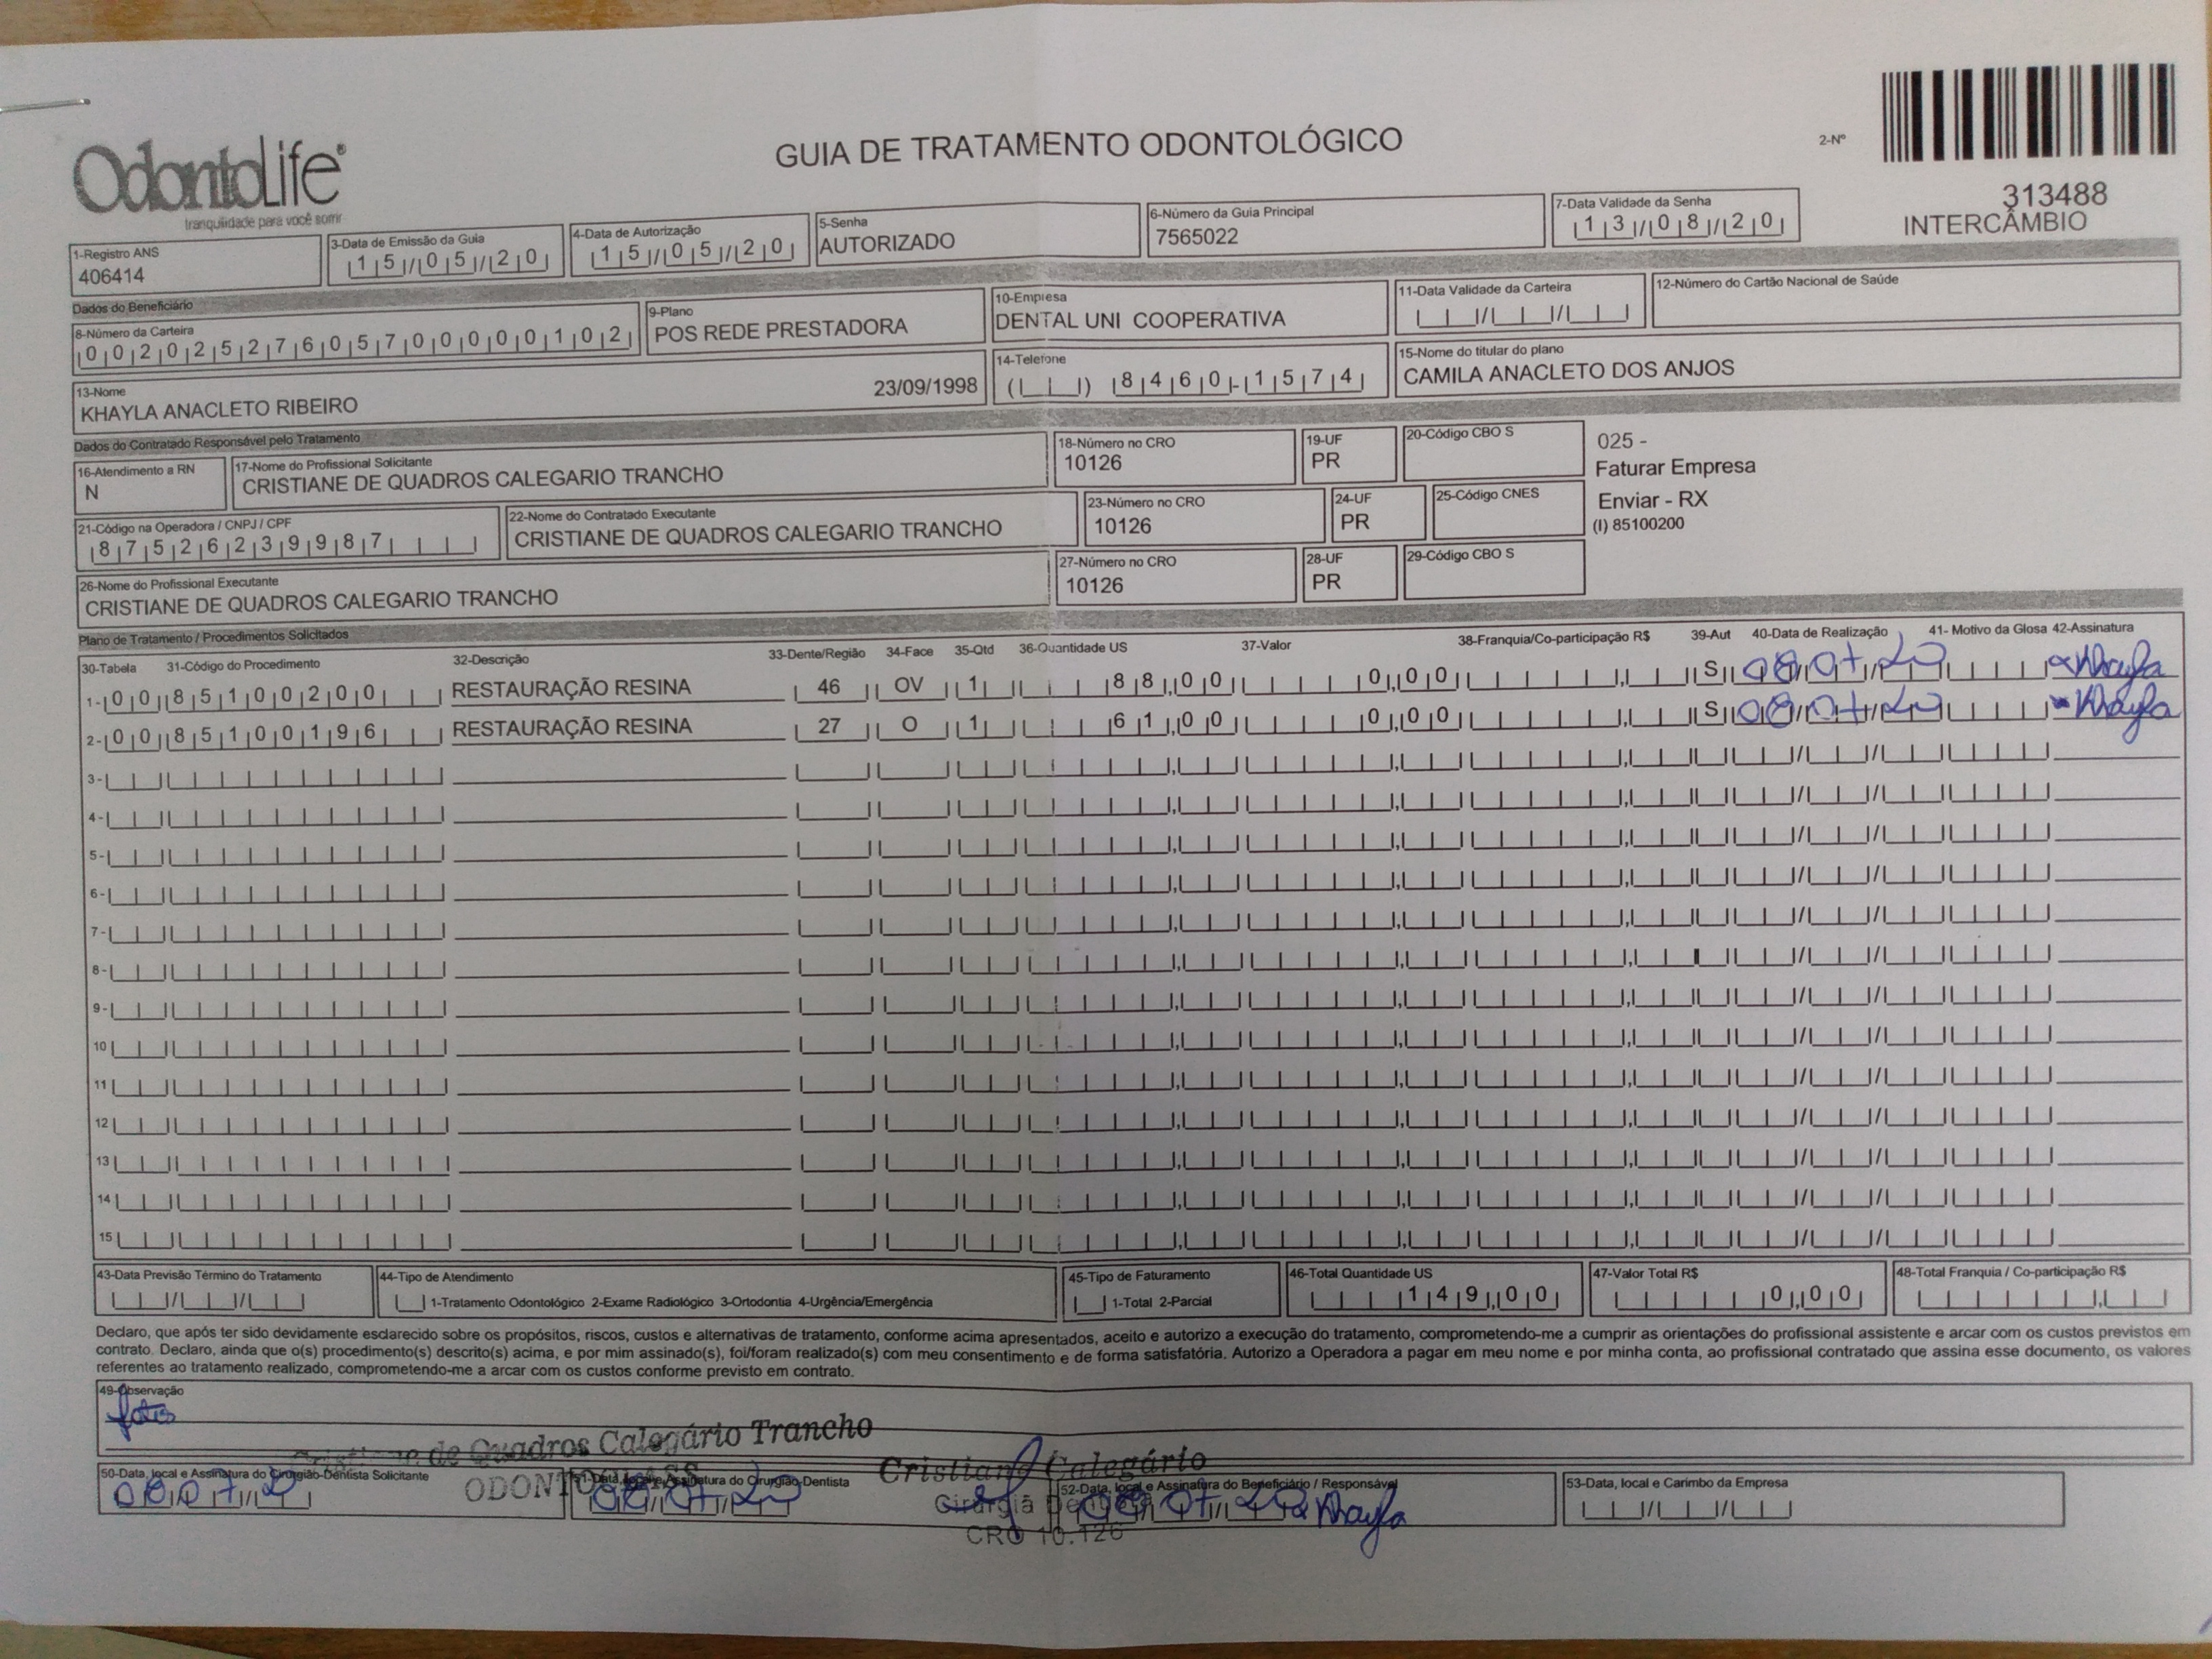 OdontoLife®
tranquilidade para você sorrir
GUIA DE TRATAMENTO ODONTOLÓGICO
2-Nº
313488
INTERCÂMBIO
1-Registro ANS
406414
3-Data de Emissão da Guia
15/05/20
4-Data de Autorização
15/05/20
5-Senha
AUTORIZADO
6-Número da Guia Principal
7565022
7-Data Validade da Senha
13/08/20
Dados do Beneficiário
8-Número da Carteira
00202527605700000102
9-Plano
POS REDE PRESTADORA
10-Empresa
DENTAL UNI COOPERATIVA
11-Data Validade da Carteira
12-Número do Cartão Nacional de Saúde
13-Nome
KHAYLA ANACLETO RIBEIRO 23/09/1998
14-Telefone
( ) 8460-1574
15-Nome do titular do plano
CAMILA ANACLETO DOS ANJOS
Dados do Contratado Responsável pelo Tratamento
16-Atendimento a RN
N
17-Nome do Profissional Solicitante
CRISTIANE DE QUADROS CALEGARIO TRANCHO
18-Número no CRO
10126
19-UF
PR
20-Código CBO S
025 -
Faturar Empresa
Enviar - RX
(I) 85100200
21-Código na Operadora / CNPJ / CPF
87526239987
22-Nome do Contratado Executante
CRISTIANE DE QUADROS CALEGARIO TRANCHO
23-Número no CRO
10126
24-UF
PR
25-Código CNES
26-Nome do Profissional Executante
CRISTIANE DE QUADROS CALEGARIO TRANCHO
27-Número no CRO
10126
28-UF
PR
29-Código CBO S
Plano de Tratamento / Procedimentos Solicitados
30-Tabela 31-Código do Procedimento 32-Descrição 33-Dente/Região 34-Face 35-Qtd 36-Quantidade US 37-Valor 38-Franquia/Co-participação R$ 39-Aut 40-Data de Realização 41- Motivo da Glosa 42-Assinatura
1- 00 85100200 RESTAURAÇÃO RESINA 46 OV 1 88,00 0,00 S 08/07/20 Khayla
2- 00 85100196 RESTAURAÇÃO RESINA 27 O 1 61,00 0,00 S 08/07/20 Khayla
3-
4-
5-
6-
7-
8-
9-
10
11
12
13
14
15
43-Data Previsão Término do Tratamento
44-Tipo de Atendimento
1-Tratamento Odontológico 2-Exame Radiológico 3-Ortodontia 4-Urgência/Emergência
45-Tipo de Faturamento
1-Total 2-Parcial
46-Total Quantidade US
149,00
47-Valor Total R$
0,00
48-Total Franquia / Co-participação R$
Declaro, que após ter sido devidamente esclarecido sobre os propósitos, riscos, custos e alternativas de tratamento, conforme acima apresentados, aceito e autorizo a execução do tratamento, comprometendo-me a cumprir as orientações do profissional assistente e arcar com os custos previstos em
contrato. Declaro, ainda que o(s) procedimento(s) descrito(s) acima, e por mim assinado(s), foi/foram realizado(s) com meu consentimento e de forma satisfatória. Autorizo a Operadora a pagar em meu nome e por minha conta, ao profissional contratado que assina esse documento, os valores
referentes ao tratamento realizado, comprometendo-me a arcar com os custos conforme previsto em contrato.
49-Observação
fotos
Cristiane de Quadros Calegário Trancho
50-Data, local e Assinatura do Cirurgião-Dentista Solicitante
08/07/20
51-Data, local e Assinatura do Cirurgião-Dentista
08/07/20
Cristiane Calegário
Cirurgiã Dentista
CRO 10.126
52-Data, local e Assinatura do Beneficiário / Responsável
08/07/20 Khayla
53-Data, local e Carimbo da Empresa